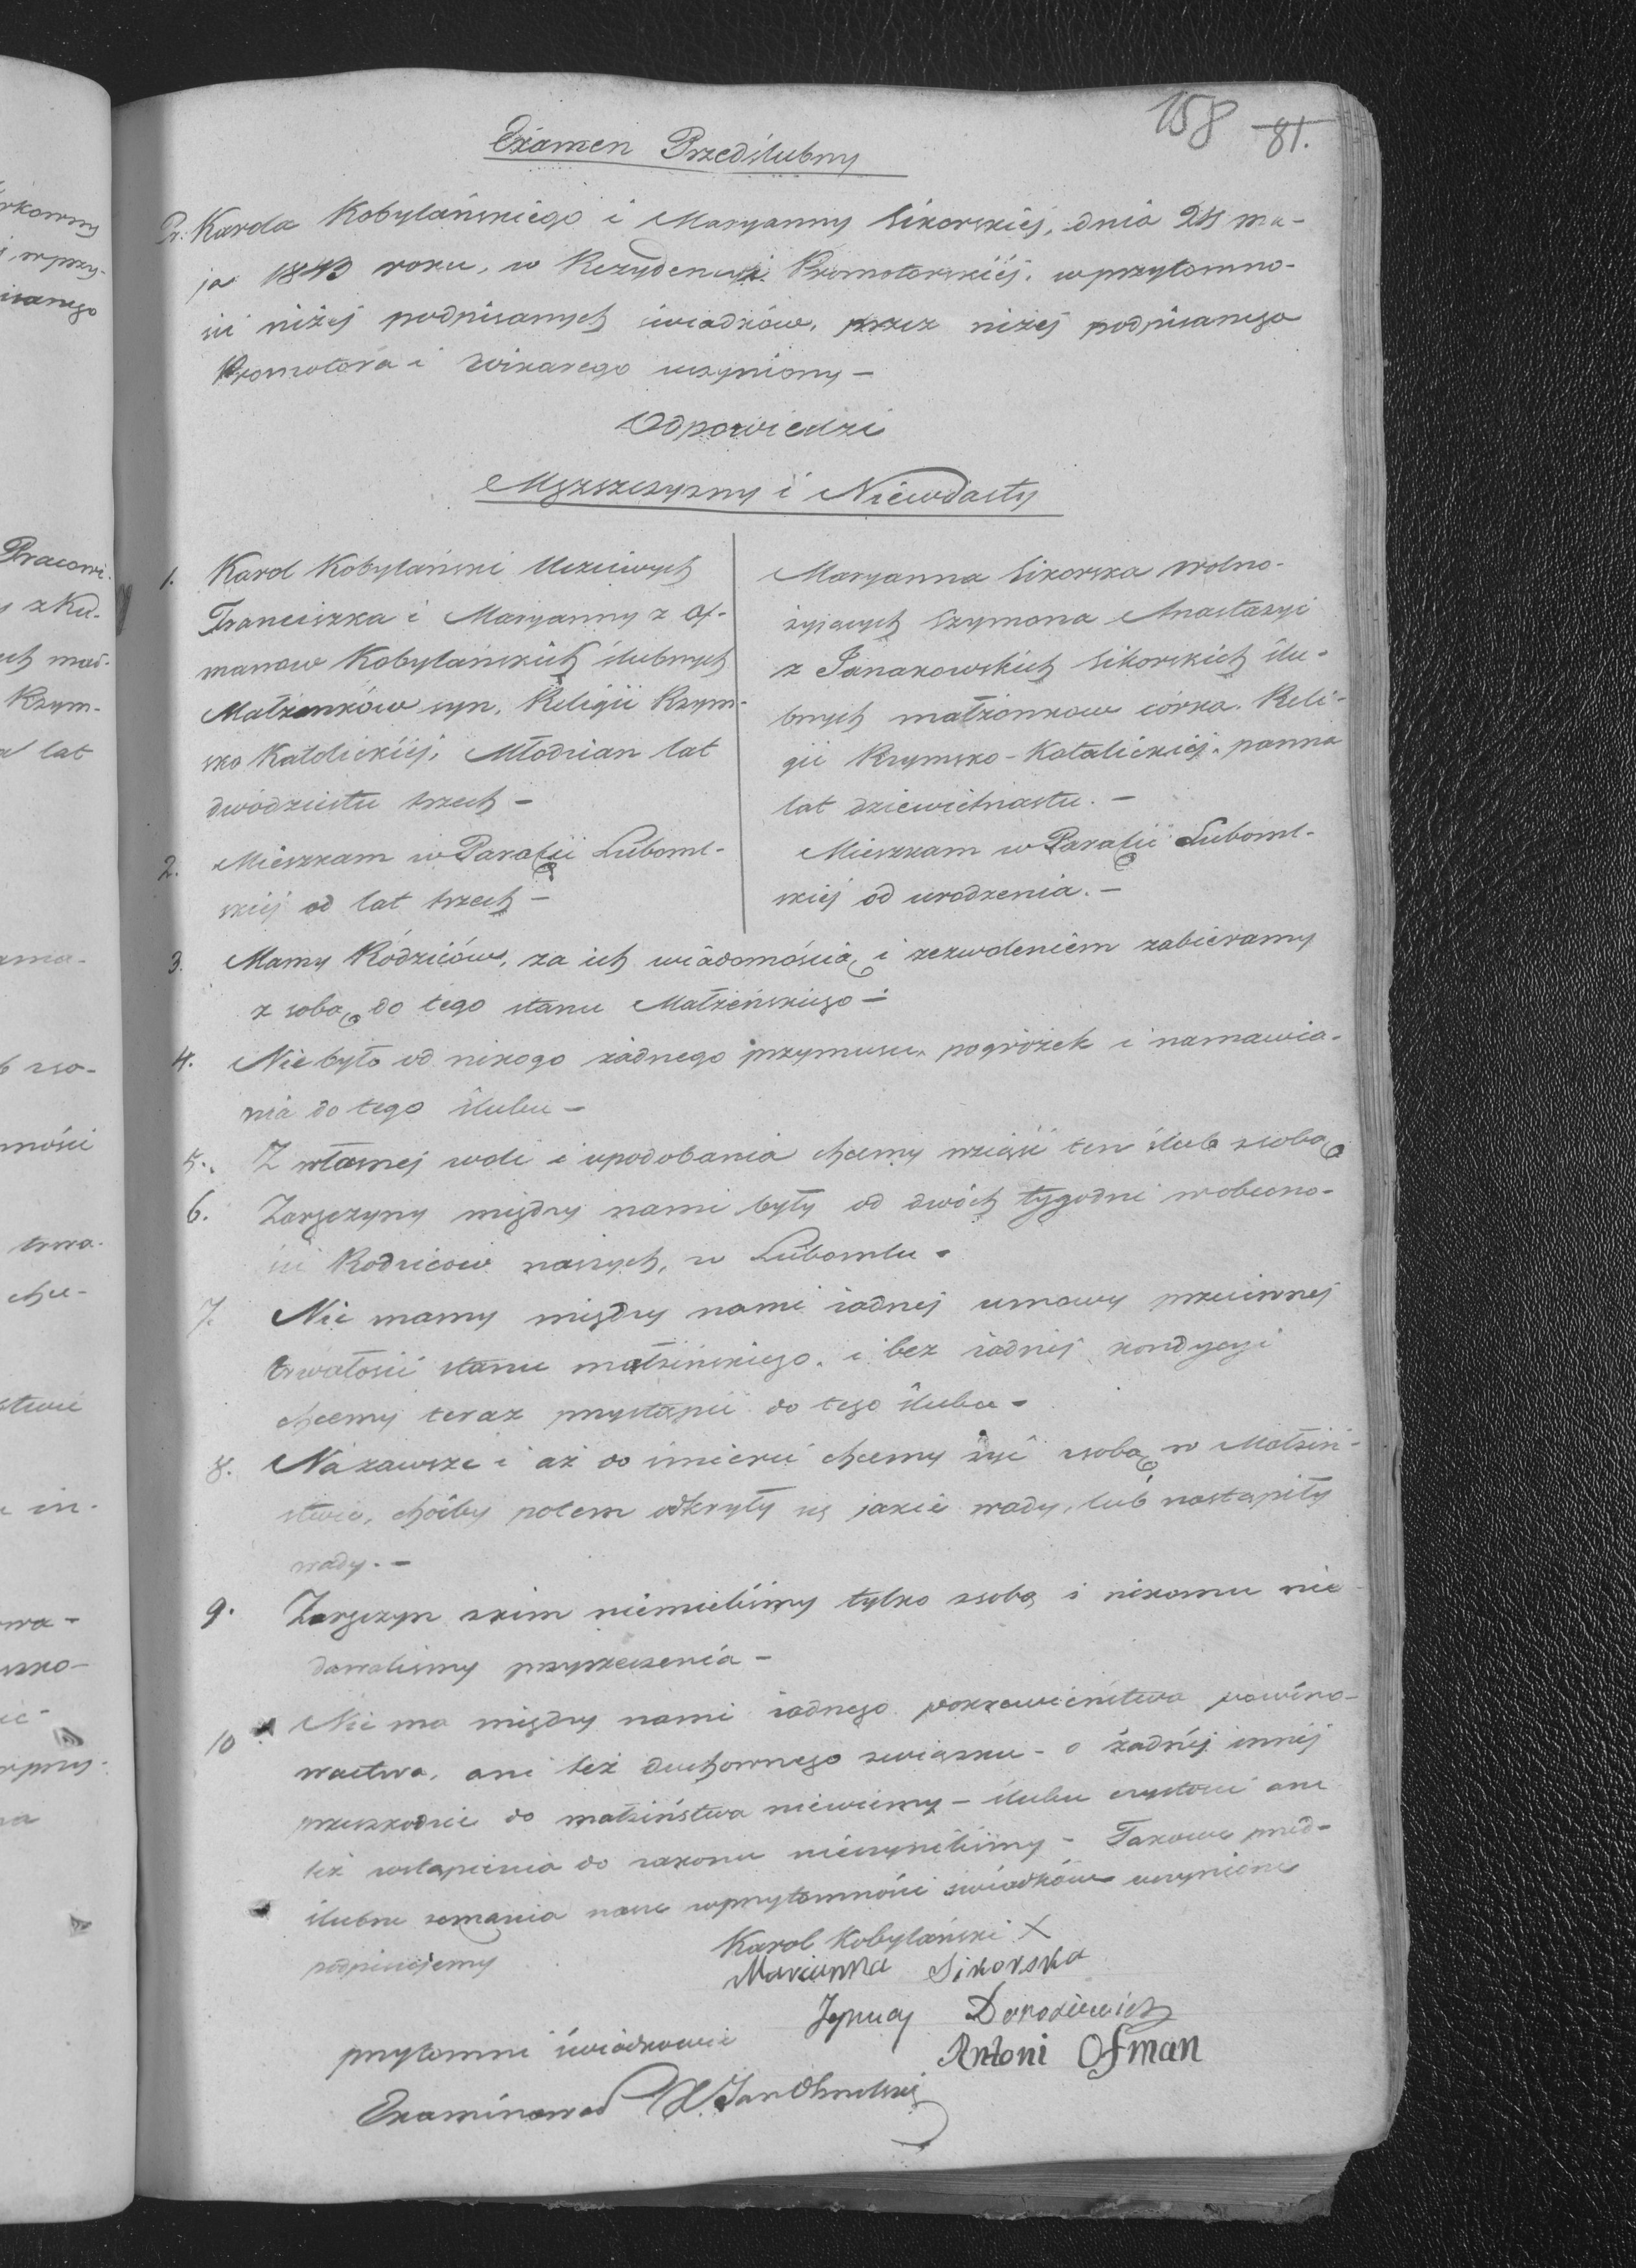 158 81.
Examen Przedślubny
Pr: Karola Kobylańskiego i Maryanny Sikorskiéj, dnia 24 ma-
ja 1843 roku, w Rezydencyi Promotorskiéj, w przytomno-
ści niżéj podpisanych świadków, przez niżéj podpisanego
Promotora i Wikarego uczyniony —
Odpowiedzi
Męzszczyzny i Niewiasty
1. Karol Kobylański Uczciwych
Franciszka i Maryanny z Of-
manow Kobylańskich ślubnych
Małżonków syn, Religii Rzym-
sko Katolickiéj, Młodzian lat
dwódziestu trzech —
2. Mieszkam w Parafii Luboml-
skiéj od lat trzech —
Maryanna Sikorska wolno-
żyjących Szymona Anastazyi
z Janakowskich Sikorskich ślu-
bnych małżonkow córka. Reli-
gii Rzymsko-Katolickiéj, panna
lat dziewiętnastu. —
Mieszkam w Parafii Luboml-
skiéj od urodzenia. —
3. Mamy Rodziców, za ich wiadomością i zezwoleniem zabieramy
z sobą do tego stanu Małżeńskiego —
4. Nie było od nikogo żadnego przymusu, pogróżek i namawia-
nia do tego ślubu —
5. Z własnej woli i upodobania chcemy wziąść ten ślub z sobą
6. Zaręczyny między nami były od dwóch tygodni w obecno-
ści Rodziców naszych, w Lubomlu -
7. Nie mamy między nami żadnej umowy przeciwnej
trwałości stanu małżeńskiego, i bez żadnéj kondycyi
chcemy teraz przystąpić do tego ślubu -
8. Na zawsze i aż do śmierci chcemy żyć z sobą w Małżeń-
stwie, choćby potem odkryły się jakie wady, lub nastąpiły
wady. —
9. Zaręczyn z kim niemieliśmy tylko z sobą i nikomu nie
dawaliśmy przyrzeczenia —
10. Nie ma między nami żadnego pokrewieństwa powino-
wactwa, ani też duchownego związku - o żadnéj innéj
przeszkodzie do małżeństwa niewiemy — ślubu czystości ani
też wstąpienia do zakonu nieczyniliśmy — Takowe przed-
ślubne zeznania nasze w przytomności świadków uczynione
podpisujemy
Karol Kobylański X
Marianna Sikorska
przytomni świadkowie Ignacy
Antoni Ofman
Examinował X. Jan